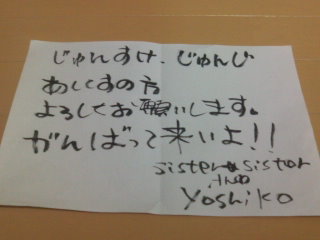 じゅんすけ、じゅんじ
あしくすの方
よろしくお願いします。
がんばって来いよ!!
sister sister
Yoshiko